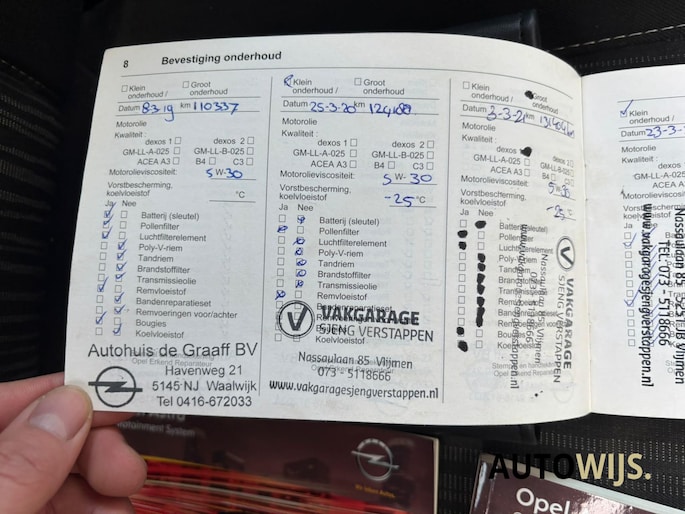 8 Bevestiging onderhoud
Klein onderhoud / Groot onderhoud
Datum 8-3-19 km 110337
Motorolie
Kwaliteit :
dexos 1 dexos 2
GM-LL-A-025 GM-LL-B-025
ACEA A3 B4 C3
Motorolieviscositeit: 5 W- 30
Vorstbescherming, koelvloeistof °C
Ja Nee
Batterij (sleutel)
Pollenfilter
Luchtfilterelement
Poly-V-riem
Tandriem
Brandstoffilter
Transmissieolie
Remvloeistof
Bandenreparatieset
Remvoeringen voor/achter
Bougies
Koelvloeistof
Autohuis de Graaff BV
Havenweg 21
5145 NJ Waalwijk
Tel 0416-672033
Klein onderhoud / Groot onderhoud
Datum 25-3-20 km
Motorolie
Kwaliteit :
dexos 1 dexos 2
GM-LL-A-025 GM-LL-B-025
ACEA A3 B4 C3
Motorolieviscositeit: 5 W- 30
Vorstbescherming, koelvloeistof -25 °C
Ja Nee
Batterij (sleutel)
Pollenfilter
Luchtfilterelement
Poly-V-riem
Tandriem
Brandstoffilter
Transmissieolie
Remvloeistof
VAKGARAGE
SJENG VERSTAPPEN
Nassaulaan 85 Vlijmen
073 - 5118666
www.vakgaragesjengverstappen.nl
Klein onderhoud / Groot onderhoud
Datum 3-3-21 km
Motorolie
Kwaliteit :
dexos 1
GM-LL-A-025 GM-LL-B-025
ACEA A3 B4 C3
Motorolieviscositeit:
Vorstbescherming, koelvloeistof
Ja Nee
Batterij
Pollenfilter
Luchtfilterelement
Poly-V-riem
Tandriem
Brandstoffilter
Transmissieolie
Remvloeistof
Bougies
Koelvloeistof
VAKGARAGE
SJENG VERSTAPPEN
Nassaulaan 85 Vlijmen
073 - 5118666
Klein onderhoud /
Datum 23-3-
Motorolie
Kwaliteit :
Nassaulaan 85 - 525
TEL: 073 - 5118666
www.vakgaragesjengverstappen.nl
Opel
AUTOWIJS.